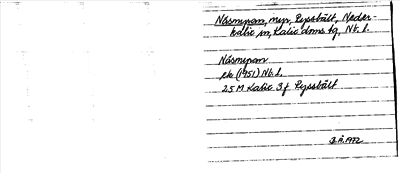 Näsmyran, myr, Lyssbält, Neder-
kalix sn, Kalix doms tg, Nb. l.
Näsmyran
ek. (1951) Nb. l.
25 M Kalix 3 f Lyssbält
B.Å. 1972